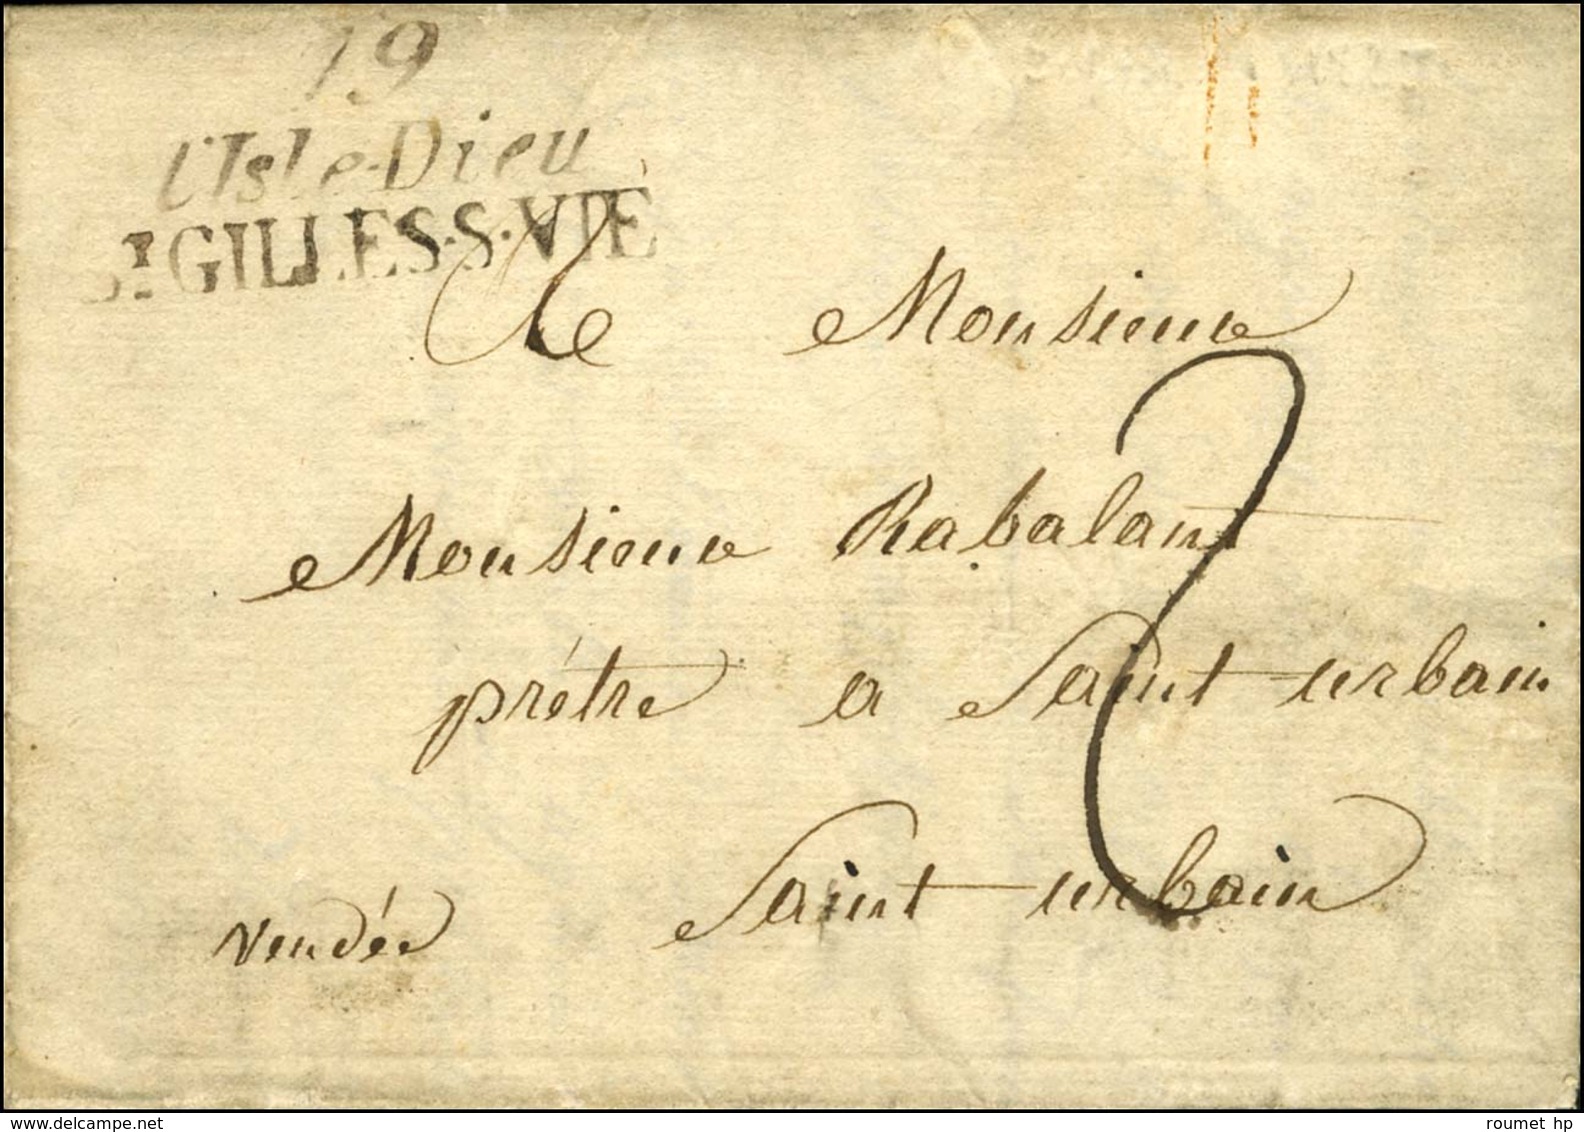 19
L'Isle-Dieu
St GILLES·S·VIE
Monsieur
Monsieur Rabalant
prétre a Saint urbain
Saint urbain
vendée
2
www.delcampe.net
roumet hp